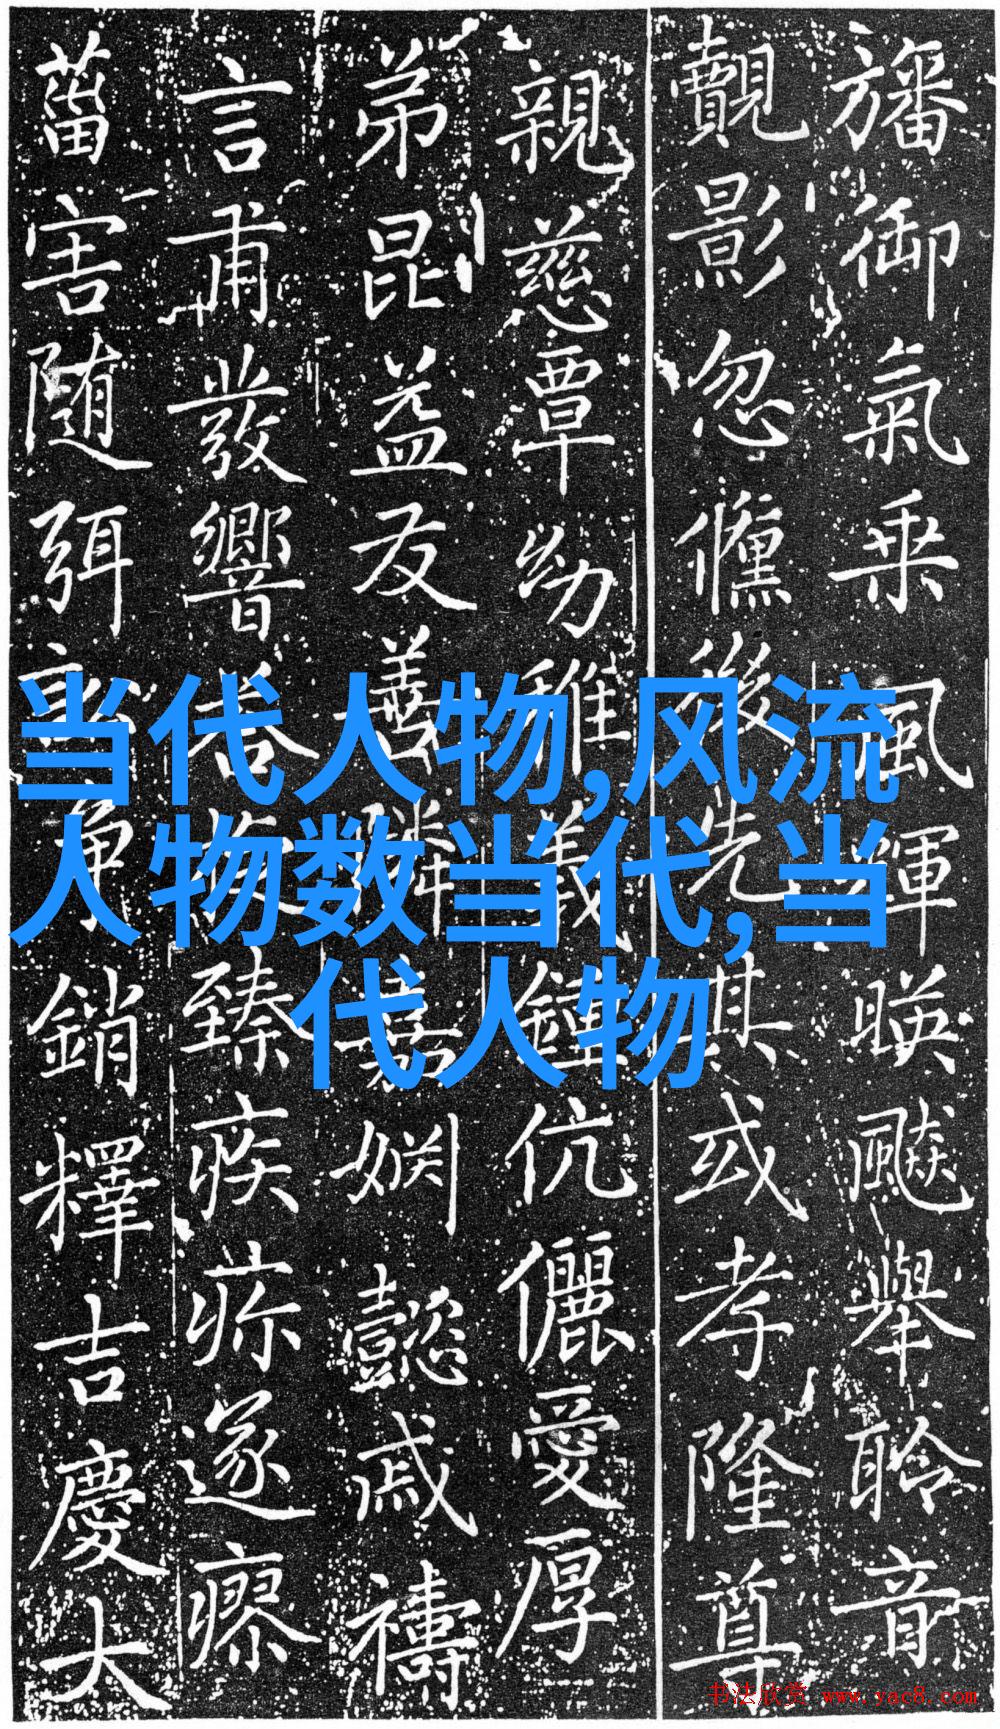 旛御氣乗風輝暎飈舉聆音
覿影忽儵後先其或孝隆尊
親慈覃幼稚義鍾伉儷愛厚
弟昆益友善懿戚禱
言甫發響臻疾疢遂瘳
菑害随弭爭銷釋吉慶大
当代人物,风流
人物数当代,当
代人物
书法欣赏 www.yac8.com